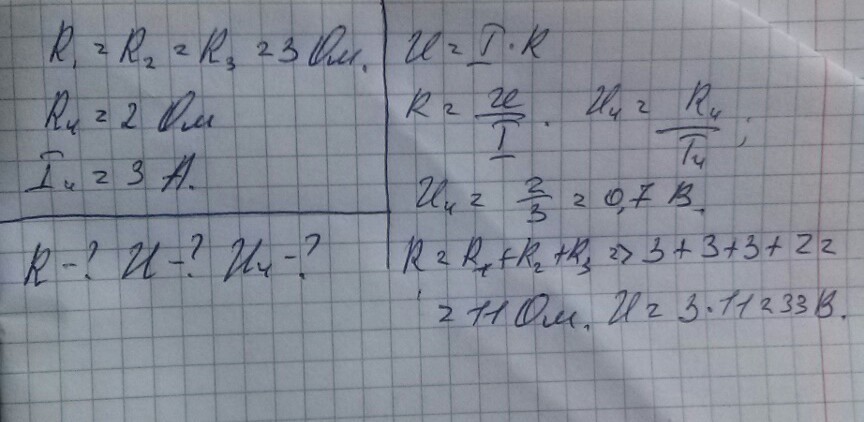 R₁ = R₂ = R₃ = 3 Ом.
R₄ = 2 Ом
I₄ = 3 А.
R-? U-? U₄-?
U = I · R
R = U/I . U₄ = R₄/I₄ ;
U₄ = 2/3 = 0,7 В.
R = R₁+R₂+R₃ => 3+3+3+2=
= 11 Ом. U = 3·11=33 В.